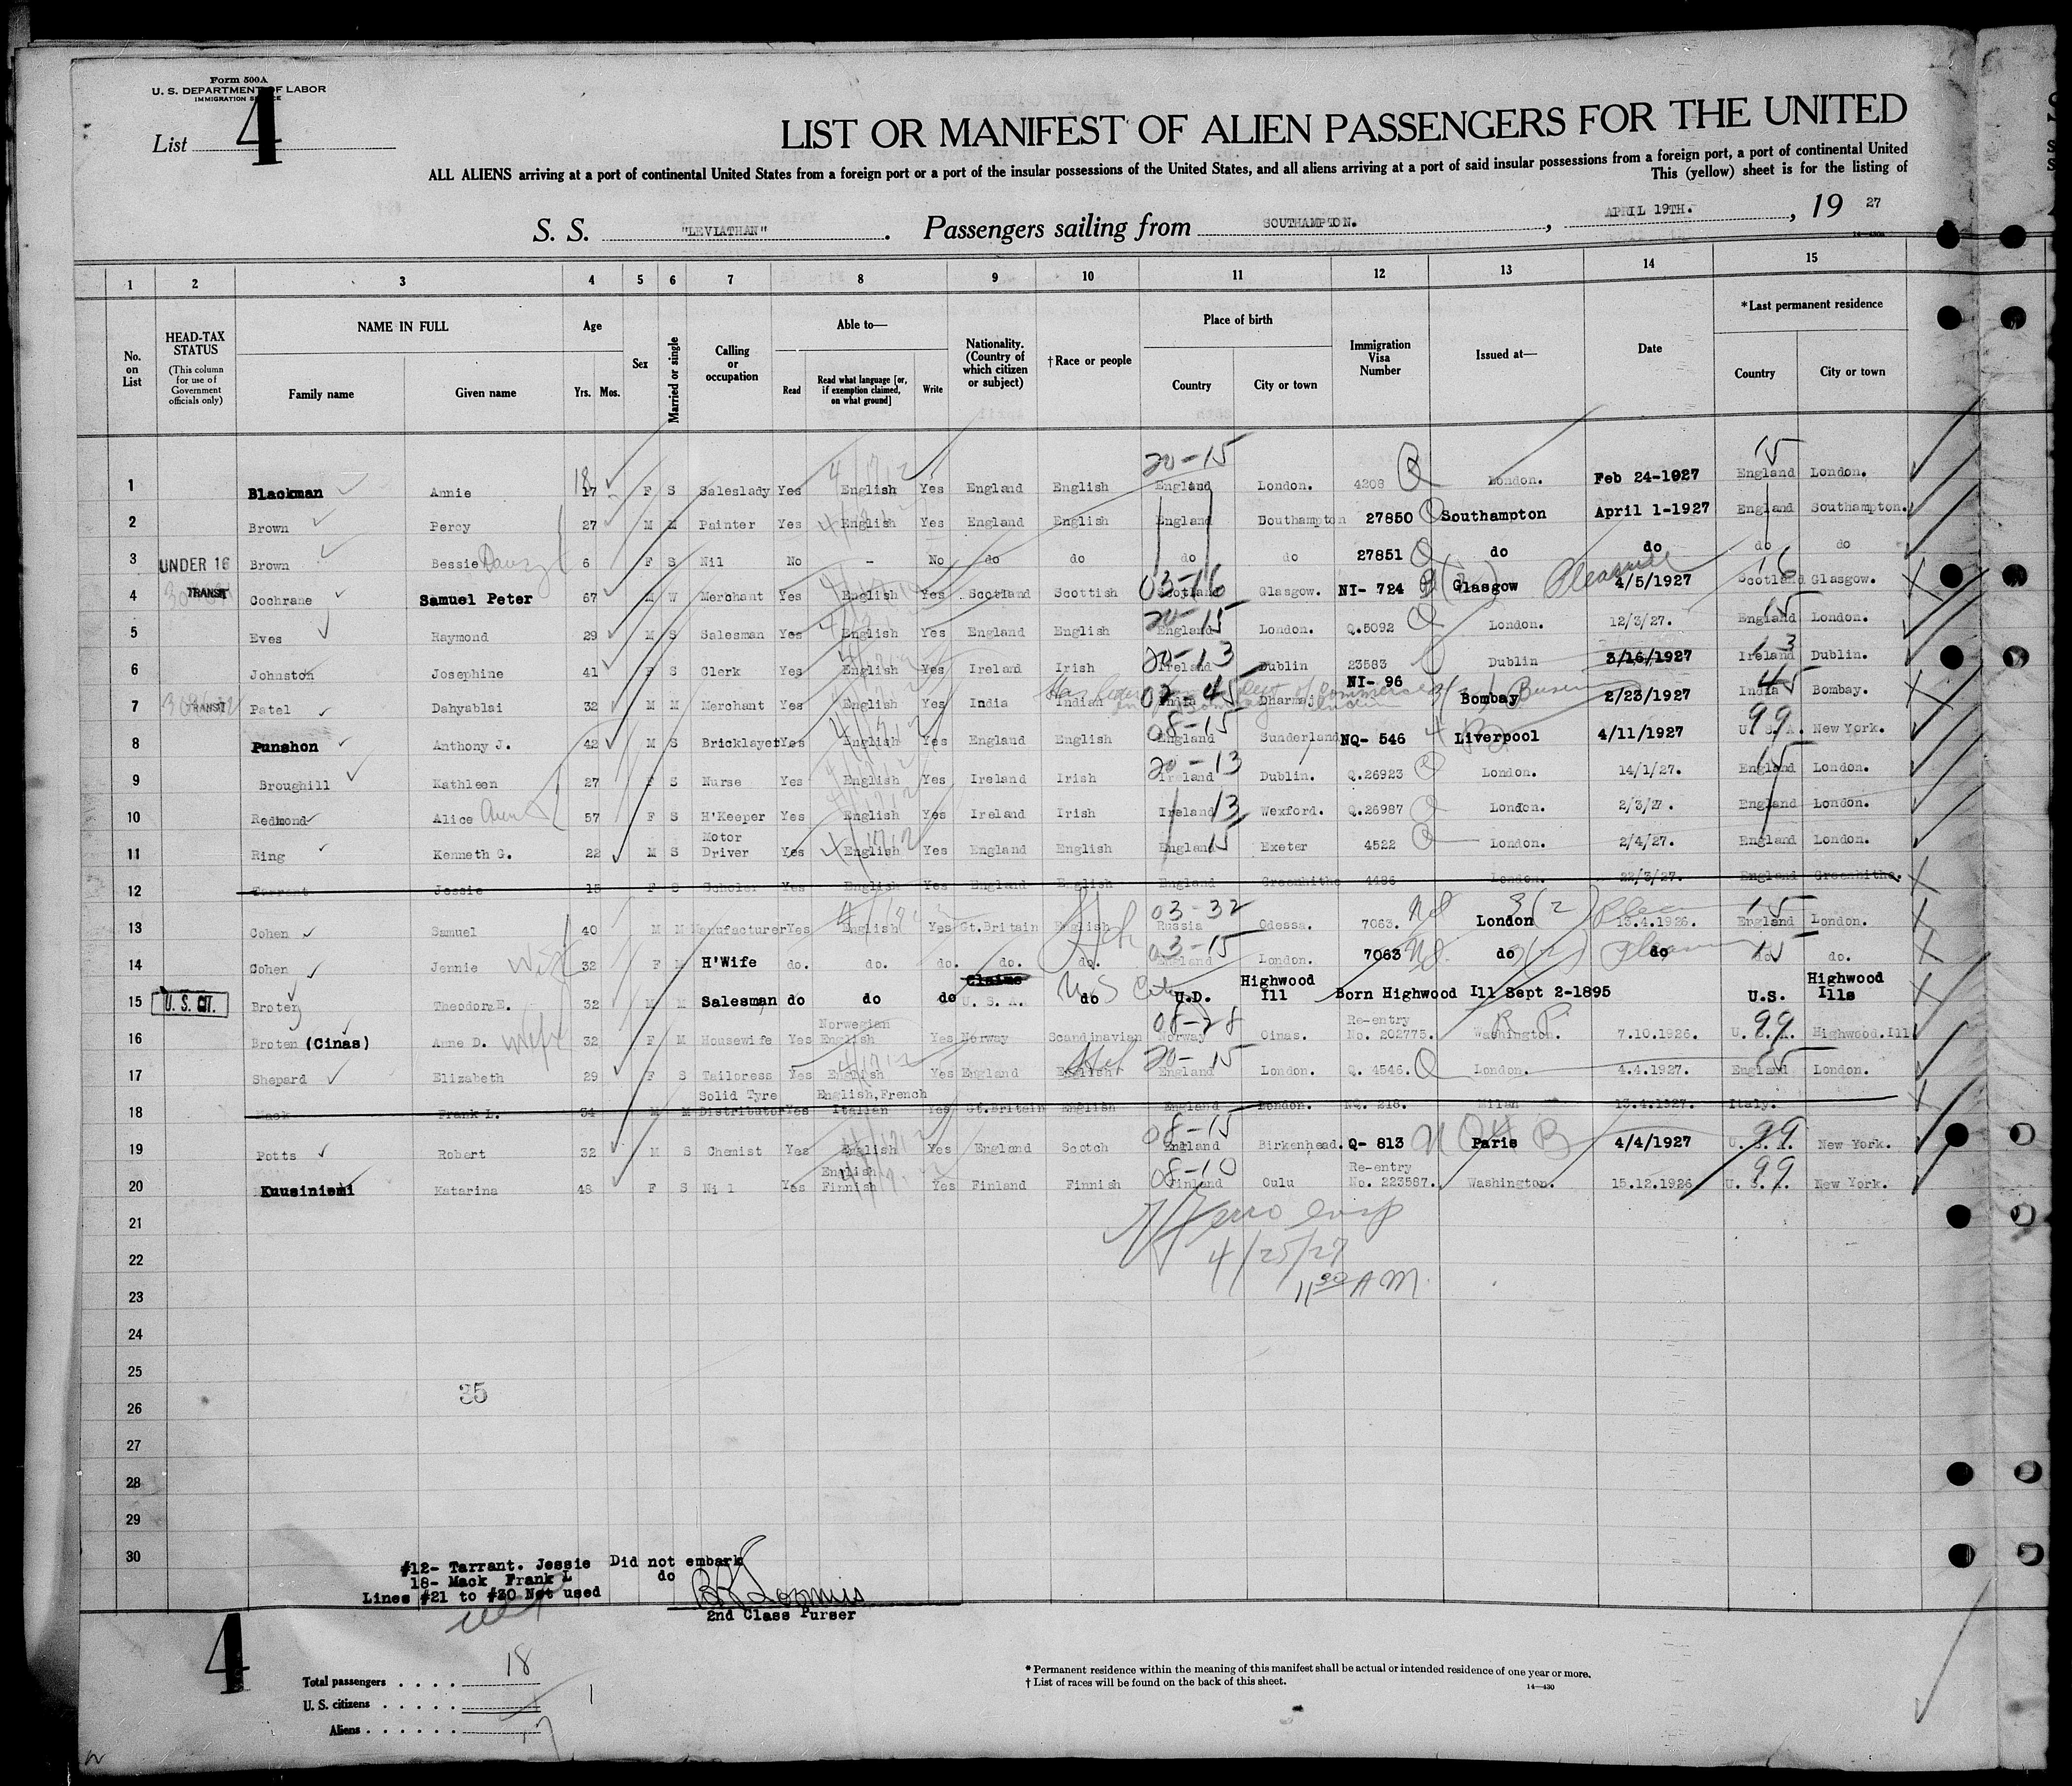 Form 500A
U. S. DEPARTMENT OF LABOR
IMMIGRATION SERVICE
List 4
LIST OR MANIFEST OF ALIEN PASSENGERS FOR THE UNITED
ALL ALIENS arriving at a port of continental United States from a foreign port or a port of the insular possessions of the United States, and all aliens arriving at a port of said insular possessions from a foreign port, a port of continental United
This (yellow) sheet is for the listing of
S. S. "LEVIATHAN". Passengers sailing from SOUTHAMPTON., APRIL 19TH., 19 27
1 2 3 4 5 6 7 8 9 10 11 12 13 14 15
No. on List
HEAD-TAX STATUS
(This column for use of Government officials only)
NAME IN FULL
Family name Given name
Age
Yrs. Mos.
Sex
Married or single
Calling or occupation
Able to—
Read
Read what language [or, if exemption claimed, on what ground]
Write
Nationality. (Country of which citizen or subject)
†Race or people
Place of birth
Country City or town
Immigration Visa Number
Issued at—
Date
*Last permanent residence
Country City or town
20-15 15
1 Blackman Annie 18 17 F S Saleslady Yes English Yes England English England London. 4208 Q London. Feb 24-1927 England London.
2 Brown Percy 27 M M Painter Yes English Yes England English England Southampton 27850 Q Southampton April 1-1927 England Southampton.
3 UNDER 16 Brown Bessie 6 F S Nil No - No do do do do 27851 Q do do do do
4 TRANSIT Cochrane Samuel Peter 67 M W Merchant Yes English Yes Scotland Scottish 03-16 Scotland Glasgow. NI- 724 Glasgow Pleasure 4/5/1927 16 Scotland Glasgow.
5 Eves Raymond 29 M S Salesman Yes English Yes England English 20-15 England London. Q.5092 Q London. 12/3/27. 15 England London.
6 Johnston Josephine 41 F S Clerk Yes English Yes Ireland Irish 20-13 Ireland Dublin 23583 Dublin 3/16/1927 13 Ireland Dublin.
7 TRANSIT Patel Dahyablai 32 M M Merchant Yes English Yes India Indian 02 45 India Dharmaj NI- 96 Bombay 2/23/1927 45 India Bombay.
8 Punshon Anthony J. 42 M S Bricklayer Yes English Yes England English 08-15 England Sunderland NQ- 546 Liverpool 4/11/1927 99 U. S. A. New York.
9 Broughill Kathleen 27 F S Nurse Yes English Yes Ireland Irish 20-13 Ireland Dublin. Q.26923 Q London. 14/1/27. 15 England London.
10 Redmond Alice Aunt 57 F S H'Keeper Yes English Yes Ireland Irish Ireland 13 Wexford. Q.26987 Q London. 2/3/27. England London.
11 Ring Kenneth G. 22 M S Motor Driver Yes English Yes England English England 15 Exeter 4522 Q London. 2/4/27. England London.
12 Tarrant Jessie 15 F S Scholar Yes English Yes England English England Greenhithe 4486 London. 22/3/27. England Greenhithe.
13 Cohen Samuel 40 M M Manufacturer Yes English Yes Gt.Britain English 03-32 Russia Odessa. 7063. London 3(2) 13.4.1926. 15 England London.
14 Cohen Jennie Wife 32 F M H'Wife do. do. do. do. do. 03-15 England London. 7063 do 3(2) do 15 do. do.
15 U. S. CIT. Broten Theodore E. 32 M M Salesman do do do Claims U. S. A. do U.D. Highwood Ill Born Highwood Ill Sept 2-1895 U.S. Highwood Ills
16 Broten (Cinas) Anne D. Wife 32 F M Housewife Yes Norwegian English Yes Norway Scandinavian 08-28 Norway Oinas. Re-entry No. 202775. Washington. 7.10.1926. 99 U. S. A. Highwood.Ill
17 Shepard Elizabeth 29 F S Tailoress Yes English Yes England English 20-15 England London. Q. 4546. Q London. 4.4.1927. 15 England London.
18 Mack Frank L. 34 M M Solid Tyre Distributor Yes English,French Italian Yes Gt.Britain English England London. NQ. 218. Milan 13.4.1927. Italy.
19 Potts Robert 32 M S Chemist Yes English Yes England Scotch 08-15 England Birkenhead. Q- 813 Paris 4/4/1927 99 U. S. A. New York.
20 Kuusiniemi Katarina 48 F S Nil Yes English Finnish Yes Finland Finnish 08-10 Finland Oulu Re-entry No. 223587. Washington. 15.12.1926 99 U. S. A. New York.
21
22 4/25/27
23 11 30 AM.
24
25
35
26
27
28
29
30
#12- Tarrant. Jessie Did not embark
18- Mack Frank L do
Lines #21 to #30 Not used
2nd Class Purser
4
Total passengers . . . . 18
U. S. citizens . . . . . . 1
Aliens . . . . . . 17
* Permanent residence within the meaning of this manifest shall be actual or intended residence of one year or more.
† List of races will be found on the back of this sheet.
14—430